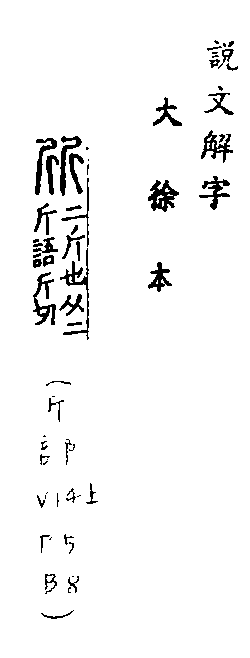 說文解字
大徐本
斦
二斤也从二
斤語斤切
(斤
部
V14上